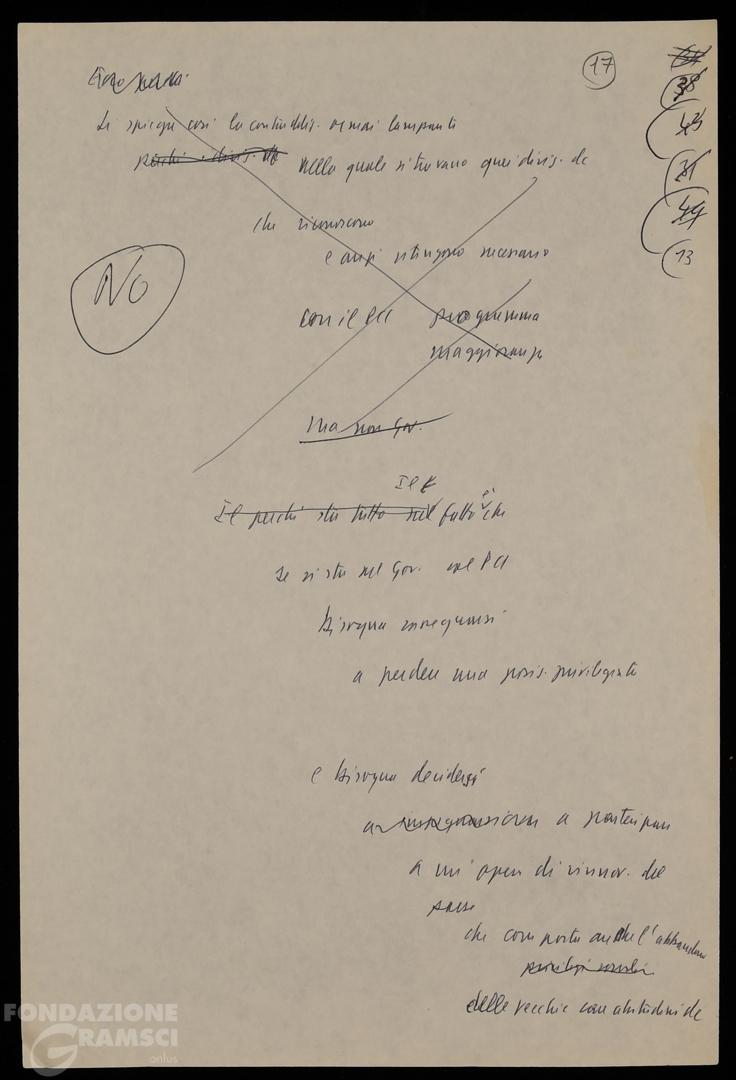 17
38
43
31
44
13
Si spiega così la contraddiz. ormai lampante
nella quale si trovano quei dirig. dc
che riconoscono
e anzi ritengono necessario
NO
con il PCI programma
maggioranza
ma non Gov.
Il
Il perché sta tutto nel fatto è che
se si sta nel Gov. col PCI
bisogna rassegnarsi
a perdere una posiz. privilegiata
e bisogna decidersi
a partecipare
a un'opera di rinnov. del
paese
che comporta anche l'abbandono
delle vecchie care abitudini dc
FONDAZIONE
GRAMSCI
onlus